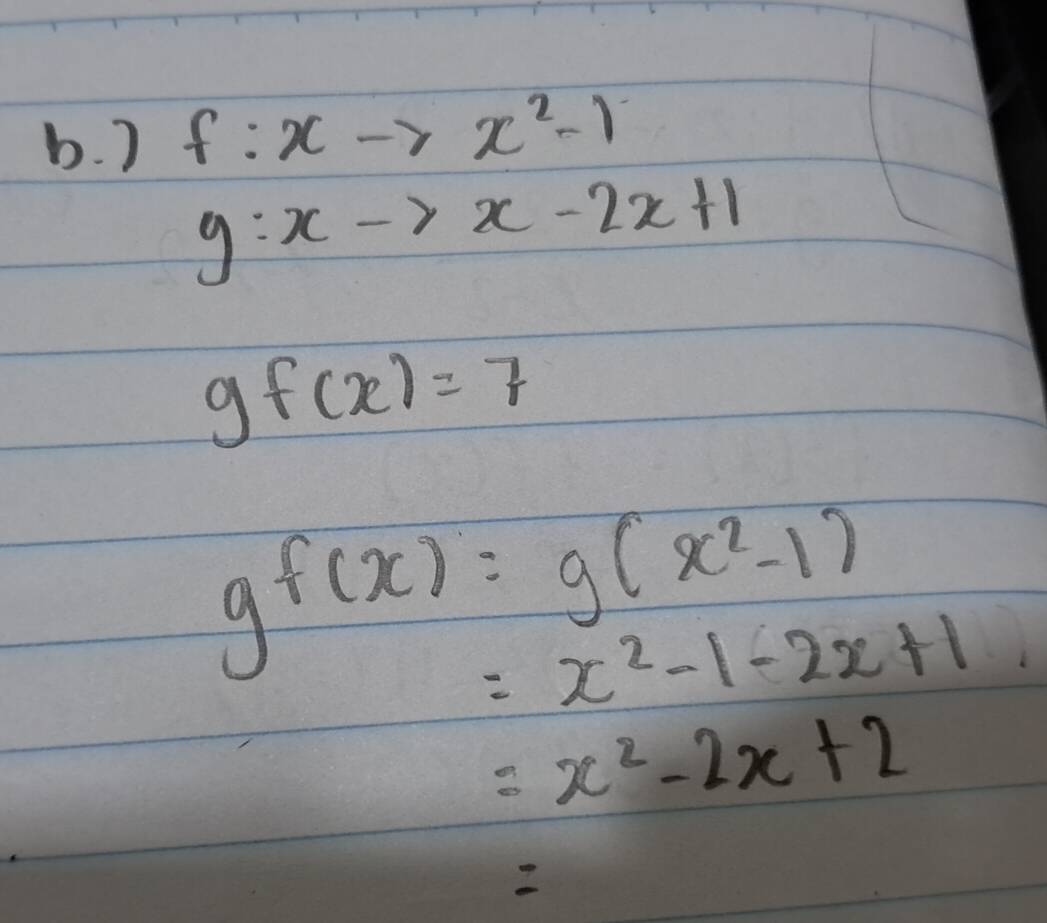 b.) f : x -> x² - 1
g : x -> x - 2x + 1
gf(x) = 7
gf(x) = g(x² - 1)
= x² - 1 - 2x + 1
= x² - 2x + 2
=